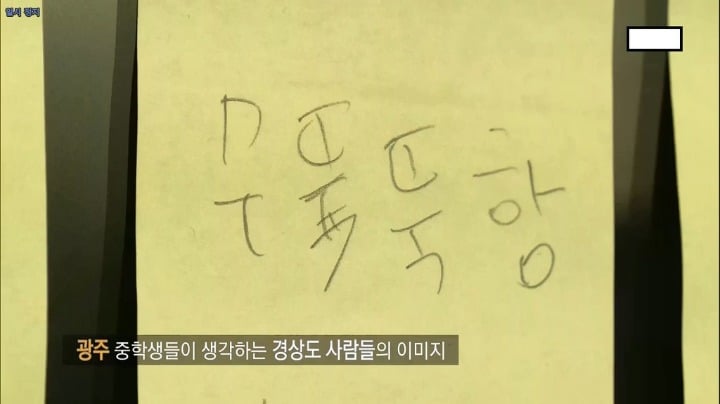 일시 정지
무뚝뚝함
광주 중학생들이 생각하는 경상도 사람들의 이미지